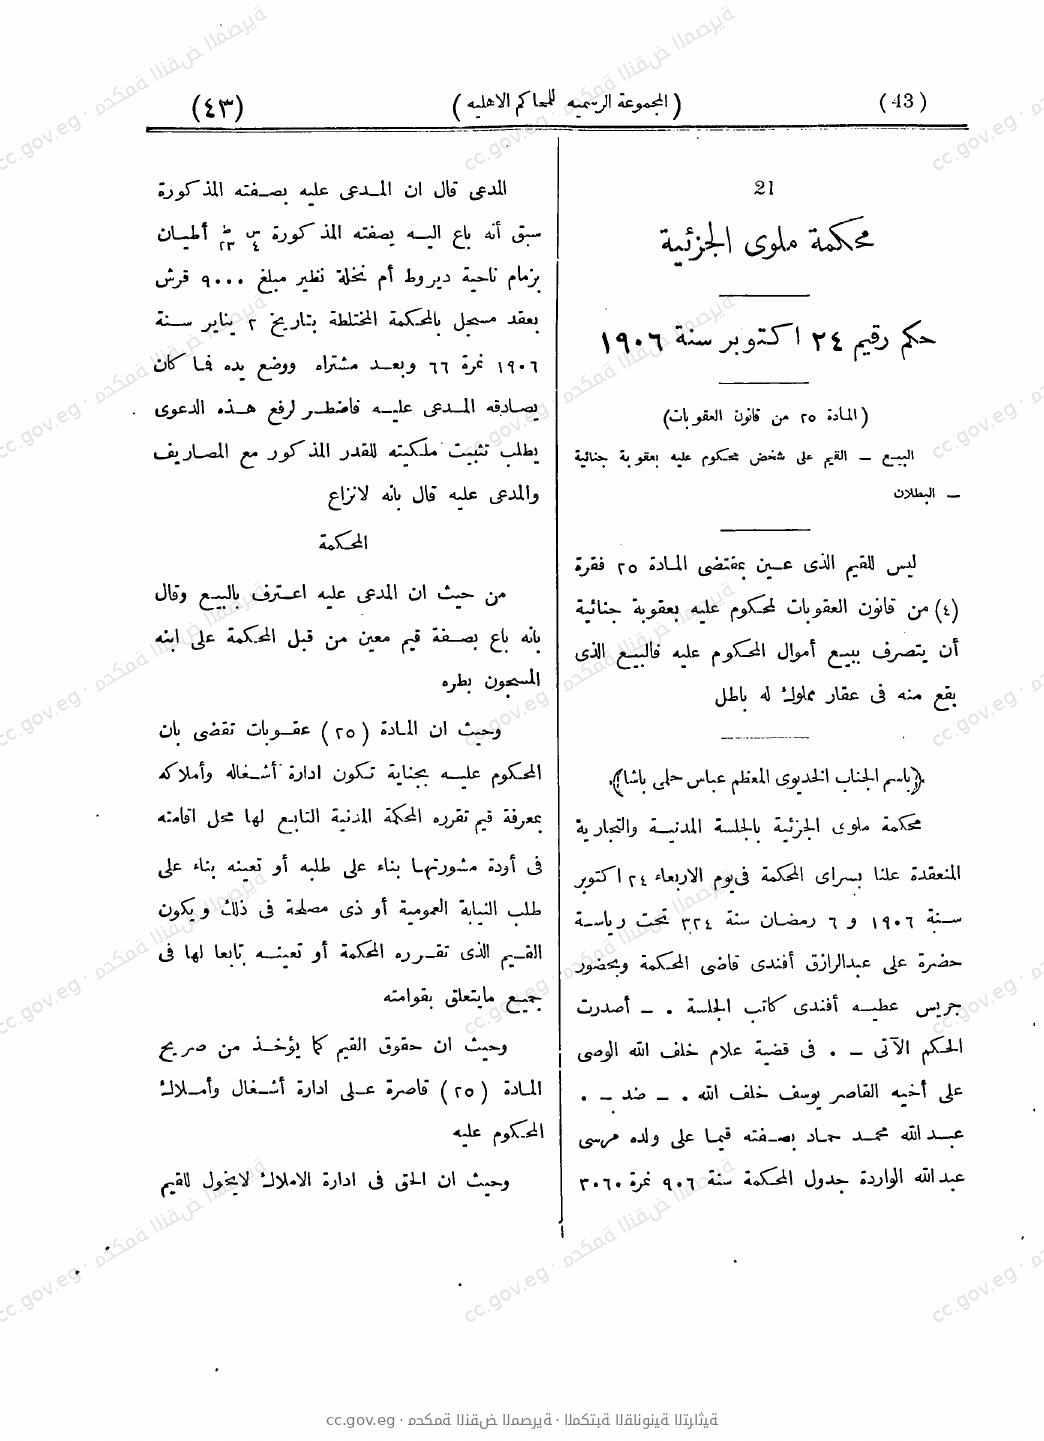 (43)
(المجموعة الرسميه للمحاكم الاهليه)
(٤٣)
21
محكمة ملوى الجزئية
حكم رقيم ٢٤ اكتوبر سنة ١٩٠٦
(المادة ٢٥ من قانون العقوبات)
البيع – القيم على شخص محكوم عليه بعقوبة جنائية
– البطلان
ليس للقيم الذى عـين بمقتضى المـادة ٢٥ فقرة
(٤) من قانون العقوبات لمحكوم عليه بعقوبة جنائية
أن يتصرف ببيع أموال المحكوم عليه فالبيع الذى
يقع منه فى عقار مملوك له باطل
﴿باسم الجناب الخديوى المعظم عباس حلمى باشا﴾
محكمة ملوى الجزئية بالجلسة المدنيـة والتجارية
المنعقدة علنا بسراى المحكمة فى يوم الاربعاء ٢٤ اكتوبر
سـنة ١٩٠٦ و ٦ رمضـان سنة ٣٢٤ تحت رياسـة
حضرة على عبدالرازق أفندى قاضى المحكمة وبحضور
جريس عطيـه أفندى كاتب الجلسة . – أصدرت
الحكم الآتى – . فى قضية علام خلف الله الوصى
على أخيه القاصر يوسف خلف الله . – ضد – .
عبـد الله محمـد حمـاد بصـفته قيما على ولده مرسى
عبد الله الواردة جدول المحكمة سنة ٩٠٦ نمرة ٣٠٦٠
المدعى قال ان المـدعى عليه بصـفته المذكورة
سبق أنه باع اليـه بصفته المذكورة س ٤ ط ٢٣ أطيـان
بزمام ناحية ديروط أم نخلة نظير مبلغ ٩٠٠٠ قرش
بعقد مسجل بالمحكمة المختلطة بتاريخ ٢ يناير سـنة
١٩٠٦ نمرة ٦٦ وبعـد مشتراه ووضع يده فما كان
يصـادقه المـدعى عليـه فاضطـر لرفع هـذه الدعوى
يطلب تثبيت ملكيته للقدر المذكور مع المصـاريف
والمدعى عليه قال بانه لا نزاع
المحكمة
من حيث ان المدعى عليه اعـترف بالبيـع وقال
بانه باع بصـفة قيم معين من قبل المحكمة على ابنه
المسجون بطره
وحيث ان المـادة (٢٥) عقـوبات تقضى بان
المحكوم عليـه بجناية تـكون ادارة أشـغاله وأملاكه
بمعرفة قيم تقرره المحكمة المدنية التابع لها محل اقامته
فى أودة مشورتهـا بناء على طلبه أو تعينه بناء على
طلب النيابة العمومية أو ذى مصلحة فى ذلك ويكون
القـيم الذى تقـرره المحكمة أو تعينـه تابعا لها فى
جميع ما يتعلق بقوامته
وحيث ان حقوق القيم كما يؤخـذ من صريح
المـادة (٢٥) قاصرة عـلى ادارة أشـغال وأمـلاك
المحكوم عليه
وحيث ان الحق فى ادارة الاملاك لا يخول للقيم
cc.gov.eg · محكمة النقض المصرية · المكتبة القانونية التراثية